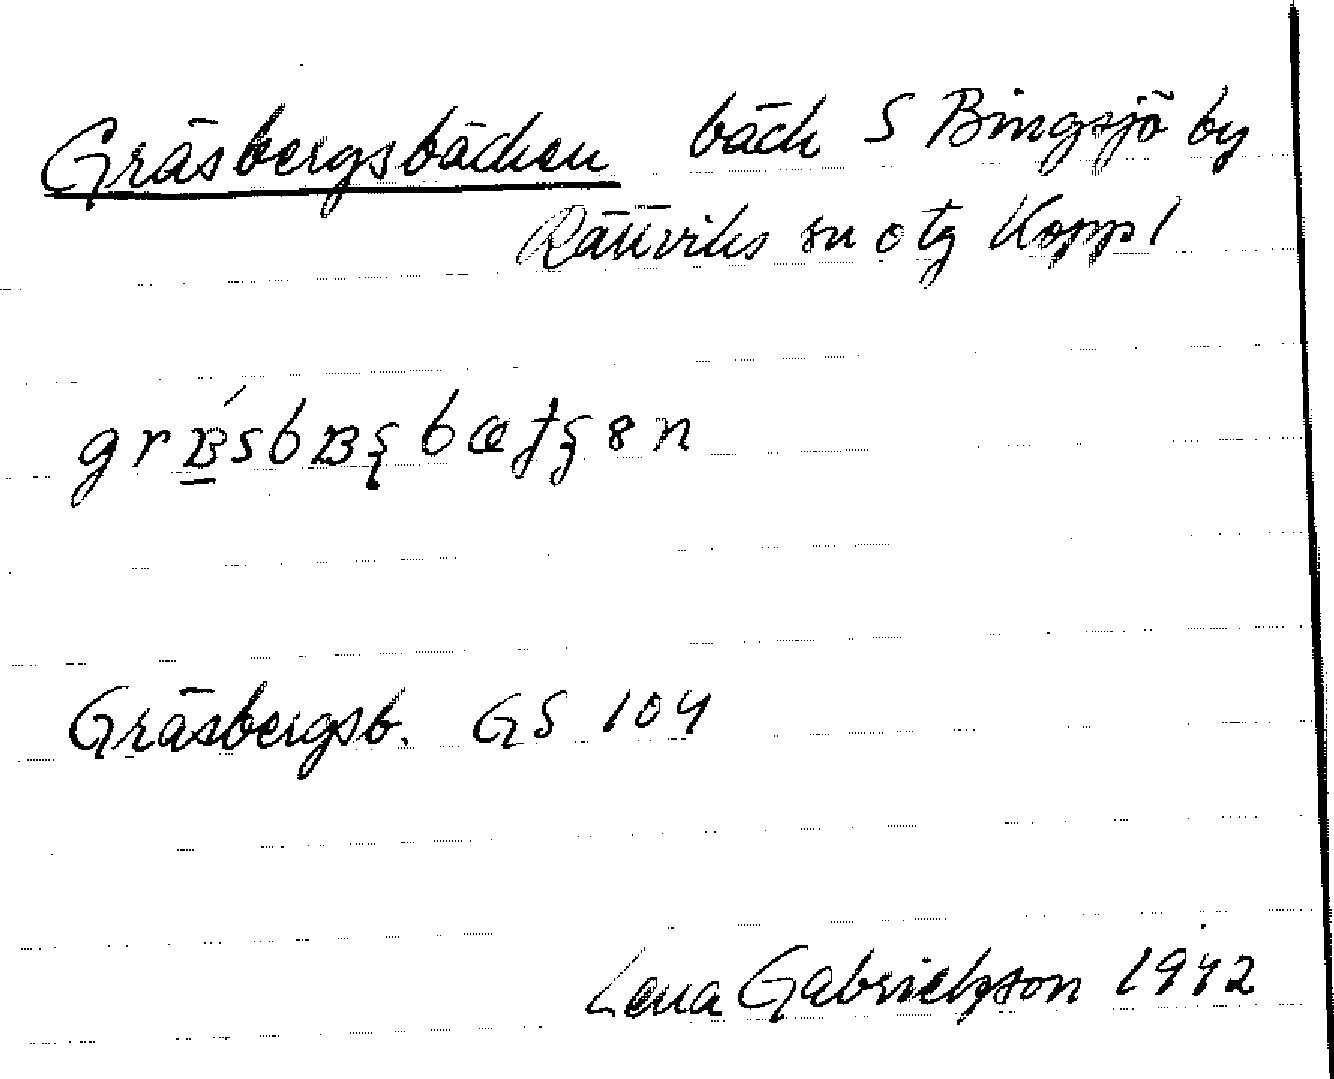 Gräsbergsbäcken bäck S Bingsjö by
Rättviks sn o tg Koppl
Gräsbergsb. GS 104
Lena Gabrielsson 1942